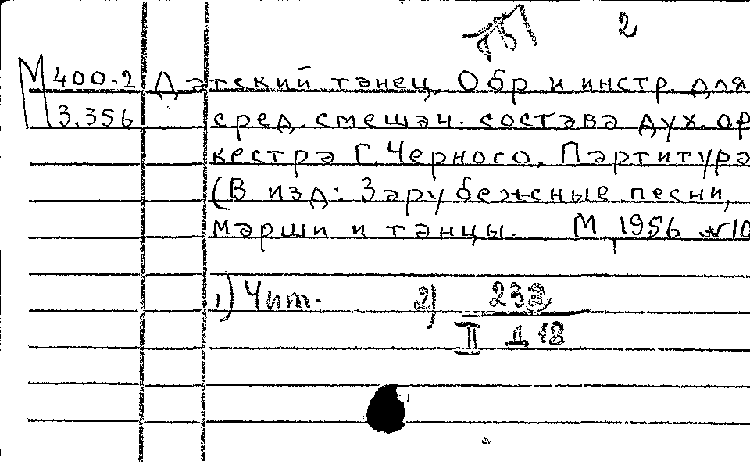 2
М 400-2 Датский танец. Обр и инстр. для
3.356 сред. смешан. состава дух. ор
кестра Г. Черного. Партитура
(В изд: Зарубежные песни,
марши и танцы. М, 1956 №10
1) Чит. 2) 232
II Д 18